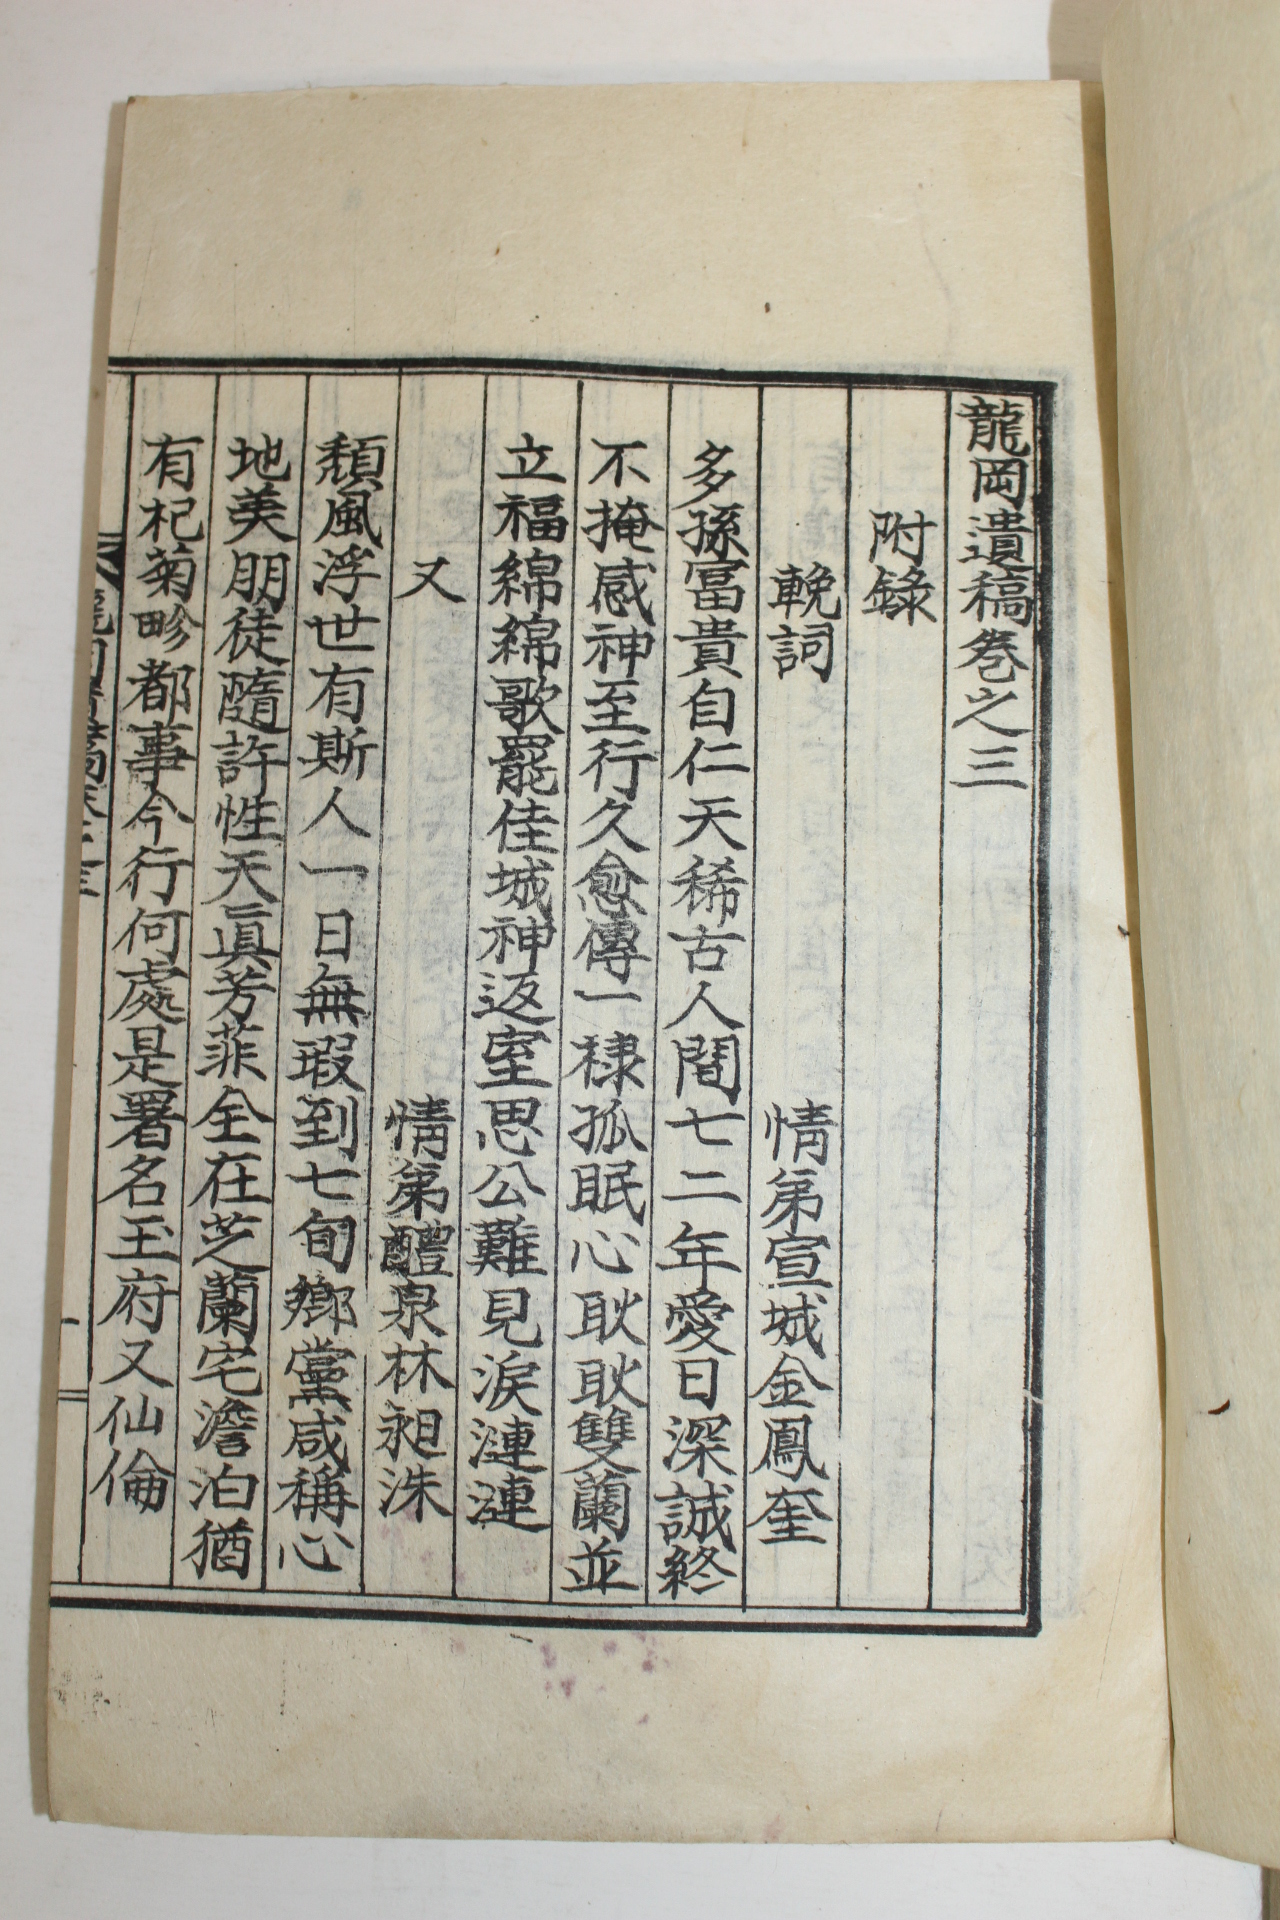 龍岡遺稿卷之三
附錄
輓詞
情弟宣城金鳳奎
多孫富貴自仁天稀古人間七二年愛日深誠終
不掩感神至行久愈傳一棣孤眠心耿耿雙蘭並
立福綿綿歌罷佳城神返室思公難見淚漣漣
又
情弟醴泉林昶洙
頹風浮世有斯人一日無瑕到七旬鄕黨咸稱心
地美朋徒隨許性天眞芳菲全在芝蘭宅澹泊猶
有杞菊畛都事今行何處是署名玉府又仙倫